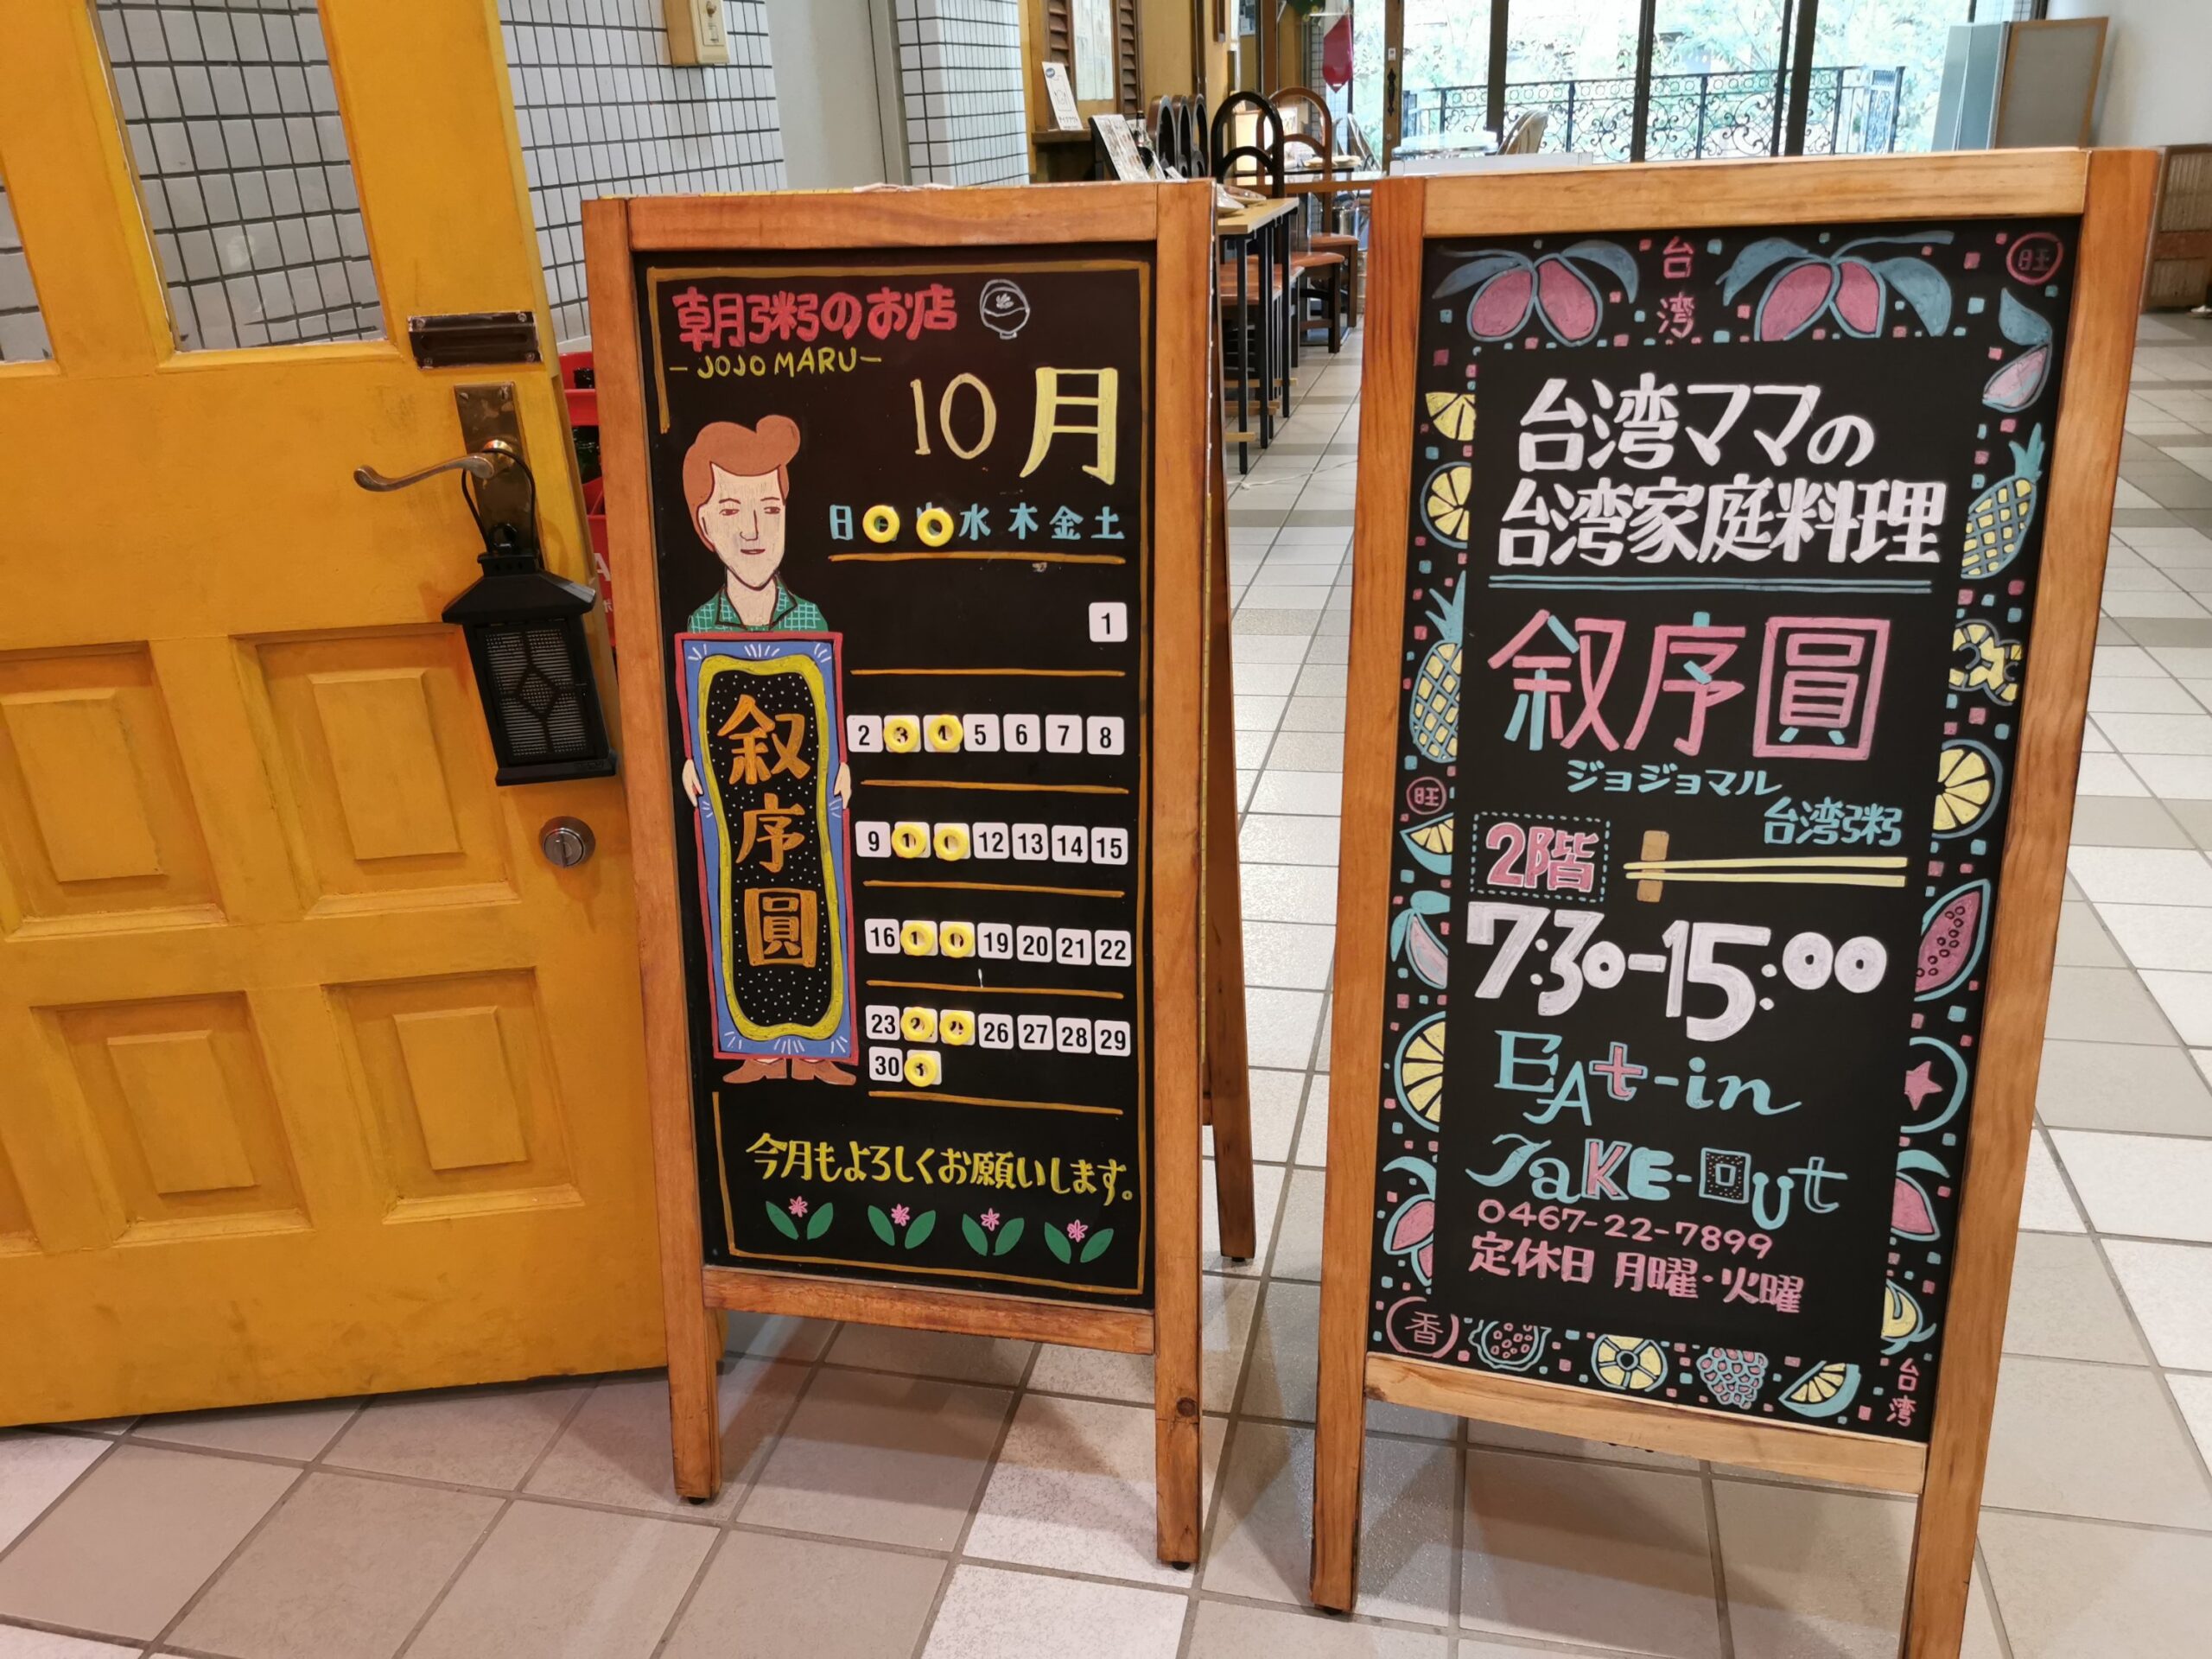 朝粥のお店
-JOJO MARU-
10月
日 水 木 金 土
1
2 3 4 5 6 7 8
9 12 13 14 15
16 19 20 21 22
23 26 27 28 29
30
叙序圓
今月もよろしくお願いします。
台湾
旺
台湾ママの
台湾家庭料理
叙序圓
ジョジョマル
台湾粥
旺
2階
7:30-15:00
EAt-in
TaKE-OUt
0467-22-7899
定休日 月曜・火曜
香
台湾